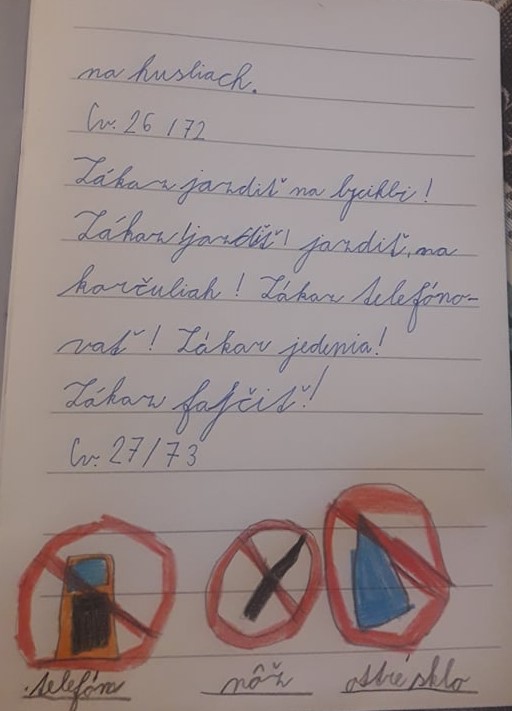 na husliach.
Cv. 26 / 72
Zákaz jazdiť na bycikli!
Zákaz jazdiť! jazdiť na
korčuliah! Zákaz telefóno-
vať! Zákaz jedenia!
Zákaz fajčiť!
Cv. 27/73
telefón nôž ostré sklo